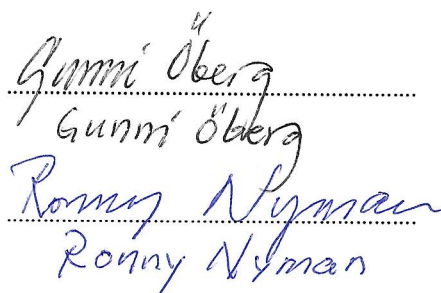 Gunni Öberg
Gunni Öberg
Ronny Nyman
Ronny Nyman